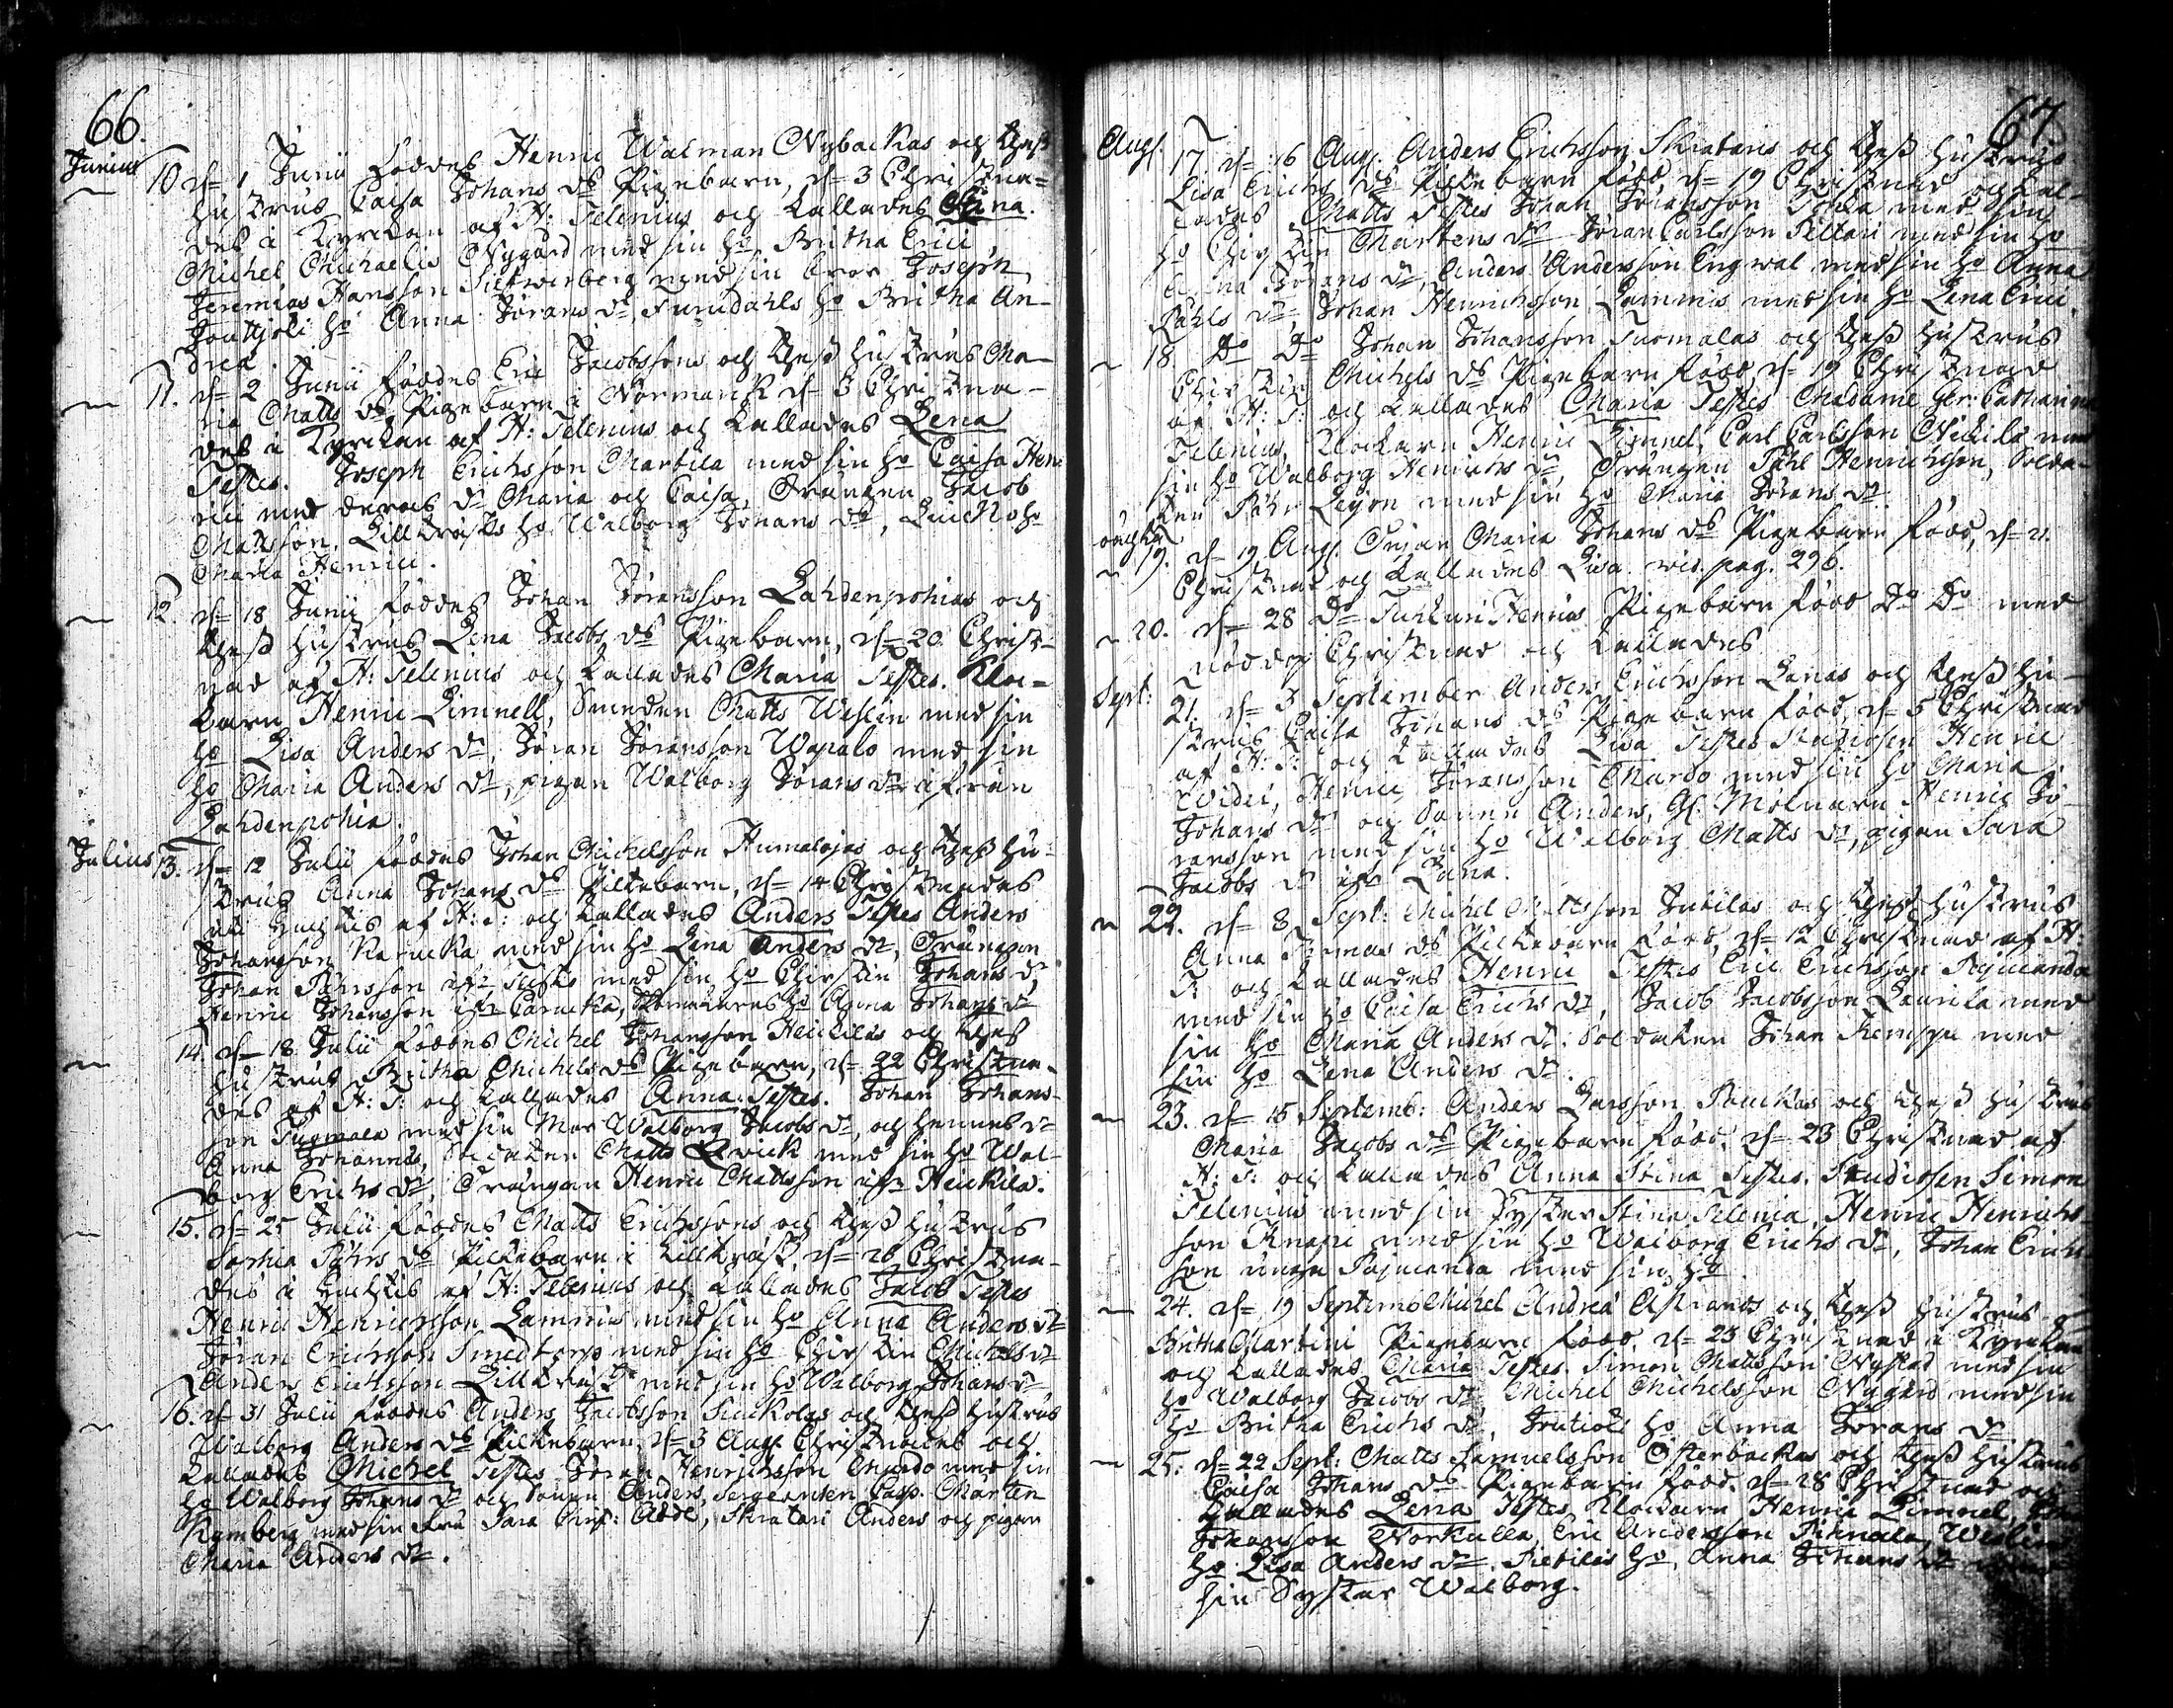 66.
Junius
10 d. 1 Junii föddes Henric Walman Nybackas och dess
hustrus Caisa Johans dr Pigebarn, d. 3 Christna-
des i Kyrckan af H: Telenius och kallades Stina.
Michel Michaelis Nygård med sin ho Britha Erici,
Jeremias Hansson med sin bror Joseph
ho Anna Jörans dr, ho Britha An-
drea.
11. d. 2 Junii föddes Eric Jacobssons och dess hustrus Ma-
ria Matts dr Pigebarn i Normark d. 3 Christna-
des i Kyrckan af H: Telenius och kallades Lena
Testes. Joseph Erichsson Markila med sin ho Caisa Hen-
rici med deras dr Maria och Caisa, Drängen Jacob
Matsson, Lillträsks ho Walborg Johans dr, ho
Maria Henrici.
12. d. 18 Junii föddes Johan Jöransson Lahdenpohias och
dess hustrus Lena Jacobs dr Pigebarn, d. 20 Christ-
nad af H: Telenius och kallades Maria Testes. Kloc-
karn Henric Limnell, Smeden Matts Weslin med sin
ho Lisa Anders dr, Jöran Jöransson Wapalo med sin
ho Maria Anders dr, pigan Walborg Jörans dr ifrån
Lahdenpohia.
Julius
13. d. 12 Julii föddes Johan Michelsson Humalojas och dess hu-
strus Anna Johans dr Piltebarn, d. 14 Christnades
af H: T: och kallades Anders Testes Anders
Johansson Karucka med sin ho Lena Anders dr, Drängen
Johan Pährsson med sin ho Christin Johans dr
Henric Johansson ifr Carucka, ho Anna Johans dr
14. d. 18 Julii föddes Michel Johansson Heickilas och dess
hustrus Britha Michels dr Pigebarn, d. 22 Christna-
des af H: T: och kallades Anna. Testes. Johan Johans-
son Tuomala med sin Mor Walborg Jacobs dr, och hennes dr
Anna Johannis, Soldaten Matts Qwick med sin ho Wal-
borg Erichs dr, Drängen Henric Mattsson ifr Heickila.
15. d. 25 Julii föddes Matts Erichssons och dess hustrus
Sophia Pährs dr Piltebarn i Lillträsk, d. 26 Christna-
des i af H: Telenius och kallades Jacob Testes
Henric Henrichsson Lammis med sin ho Anna Anders dr
Jöran Erichsson Smedtorp med sin ho Christin Michels dr
Anders Erichsson Lillträsk med sin ho Walborg Johans dr
16. d. 31 Julii föddes Anders Jacobsson Suckolas och dess hustrus
Walborg Anders dr Piltebarn, d. 3 Aug. Christnades och
kallades Michel Testes Jöran Henrichsson Mardo med sin
ho Walborg Johans dr och sonen Anders, Sergeanten Casp. Marten
Ramberg med sin Fru Sara Abbe, Skratari Anders och pigan
Maria Anders dr.
67
Aug.
17. d. 16 Aug. Anders Erichsson Skrataris och dess hustrus
Lisa Erichs dr Piltebarn född, d. 19 Christnad och kal-
lades Matts Testes Johan Jöransson med sin
ho Christin Mårtens dr Jöran Carlsson Piltari med sin ho
Jörans dr, Anders Andersson Engwal med sin ho Anna
Påhls dr Johan Henrichsson Lammis med sin ho Lena Erici.
18 Do Do Johan Johansson Tuomalas och dess hustrus
Christin Michels dr Pigebarn född, d. 19 Christnad
af H: T: och kallades Maria Testes Madame Catharina
Telenius, Klockarn Henric Limnel, Carl Carlsson Nickilä med
sin ho Walborg Henrichs dr Drängen Påhl Henrichsson, Solda-
ten Pähr Lejon med sin ho Maria Jörans dr
oächta
19. d. 19 Aug. Pigan Maria Johans dr Pigebarn född, d. 21.
Christnad och kallades Lisa. vid. pag. 296.
20. d. 28 Do Henrics Pigebarn född Do Do med
nöddop Christnad och kallades
Sept:
21. d. 3 September Anders Erichsson Lanas och dess hu-
strus Caisa Johans dr Pigebarn född, d. 5 Christnad
af H: T: och kallades Lisa Testes Studiosen Henric
Widei, Henric Jöransson Mardo med sin ho Maria
Johans dr och Sonen Anders, Gl. Mölnarn Henric Jö-
ransson med sin ho Walborg Matts dr, pigan Sara
Jacobs dr ifr Lana.
22. d. 8 Sept: Michel Mattsson Jutilas och dess hustrus
Anna Tomas dr Piltebarn född, d. 12 Christnad af H:
T: och kallades Henric Testes Eric Erichsson Pajuranda
med sin ho Caisa Erichs dr, Jacob Jacobsson Laurila med
sin ho Maria Anders dr. Soldaten Johan Kempe med
sin ho Lena Anders dr.
23. d. 15 Septemb: Anders Larsson Pauckas och dess hustrus
Maria Jacobs dr Pigebarn född, d. 23 Christnad af
H: T: och kallades Anna Stina Testes. Studiosen Simon
Telenius med sin Syster Stina Telenia, Henric Henrichs-
son Knapi med sin ho Walborg Erichs dr, Johan Erichs-
son unga Pajuranda med sin ho
24. d. 19 Septemb Michel Andreæ Astrands och dess hustrus
Britha Martini Pigebarn född, d. 23 Christnad i Kyrckan
och kallades Maria Testes. Simon Mattsson Nystad med sin
ho Walborg Jacobs dr Michel Michelsson Nygård med sin
ho Britha Erichs dr, ho Anna Jörans dr
25. d. 22 Sept: Matts Samuelsson Österbackas och dess hustrus
Caisa Johans dr Pigebarn född, d. 28 Christnad och
kallades Lena Testes Klockarn Henric Limnel,
Johansson Norkulla, Eric Andersson Pihnala, Weslins
ho Lisa Anders dr, Pietiläs ho Anna Johans dr
sin Systar Walborg.